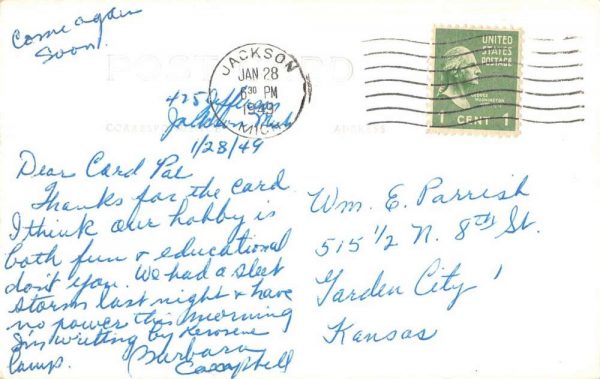 Come again
Soon.
POST CARD
UNITED
STATES
POSTAGE
GEORGE
WASHINGTON
1 CENT 1
JACKSON
JAN 28
6 30 PM
1949
MICH
425 Jefferson
Jackson Mich
1/28/49
CORRESPONDENCE ADDRESS
Dear Card Pal
Thanks for the card.
I think our hobby is
both fun & educational
don't you. We had a sleet
storm last night & have
no power this morning
I'm writing by kerosene
lamp.
Barbara
Campbell
Wm. E. Parrish
515 1/2 N. 8th St.
Garden City
Kansas